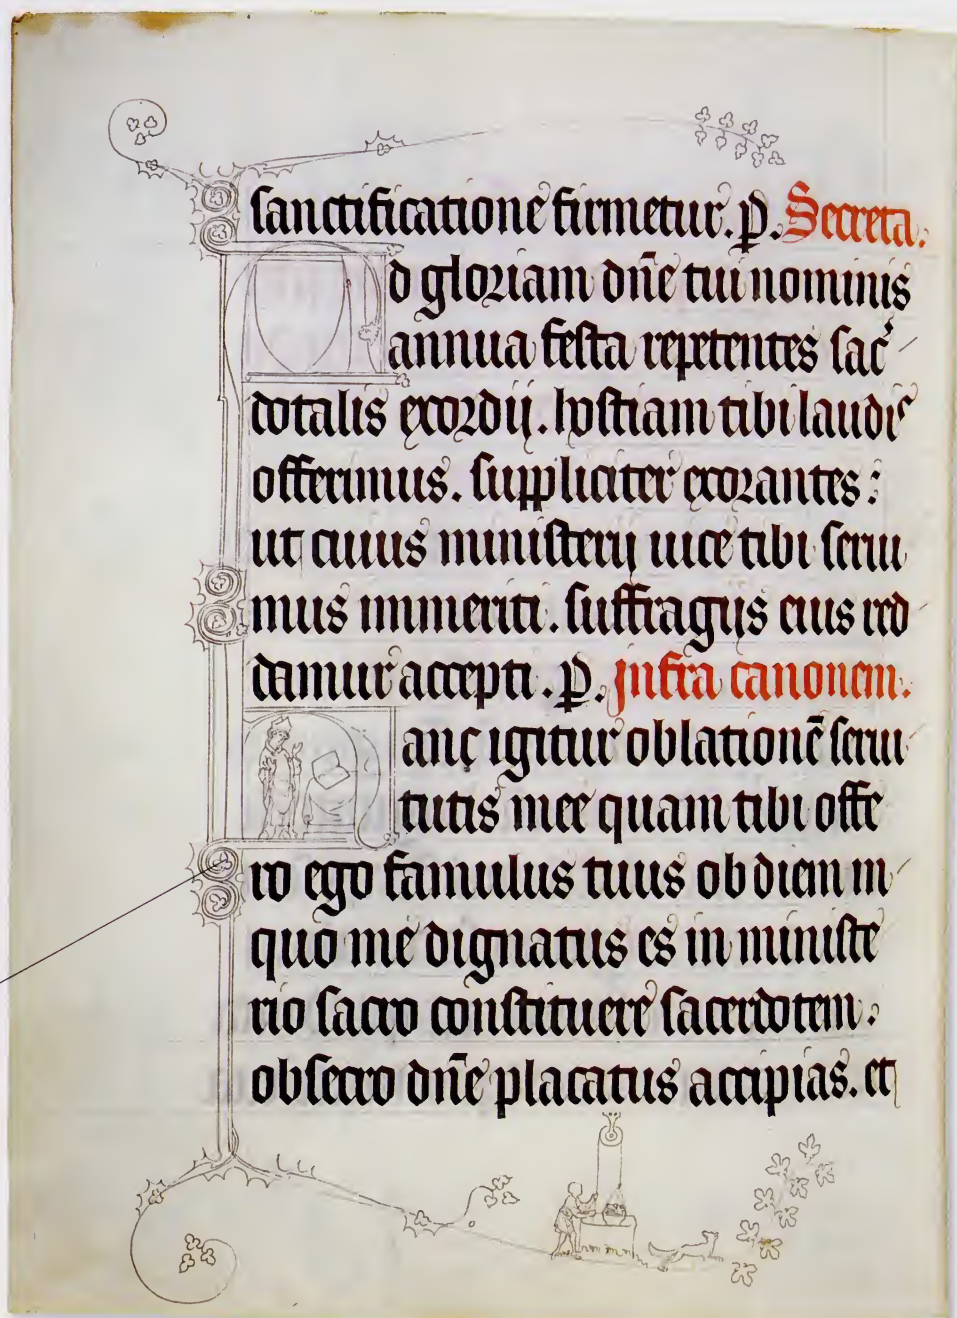 sanctificatione firmetur. p. Secreta.
d gloriam dn̄e tui nominis
annua festa repetentes sac͛
dotalis exordij. hostiam tibi laudis
offerimus. suppliciter exorantes:
ut cuius ministerij uice tibi serui
mus inmeriti. suffragijs eius red
damur accepti. p. Infra canonem.
anc igitur oblationē serui
tutis mee quam tibi offe
ro ego famulus tuus ob diem in
quo me dignatus es in ministe
rio sacro constituere sacerdotem:
obsecro dn̄e placatus accipias. et